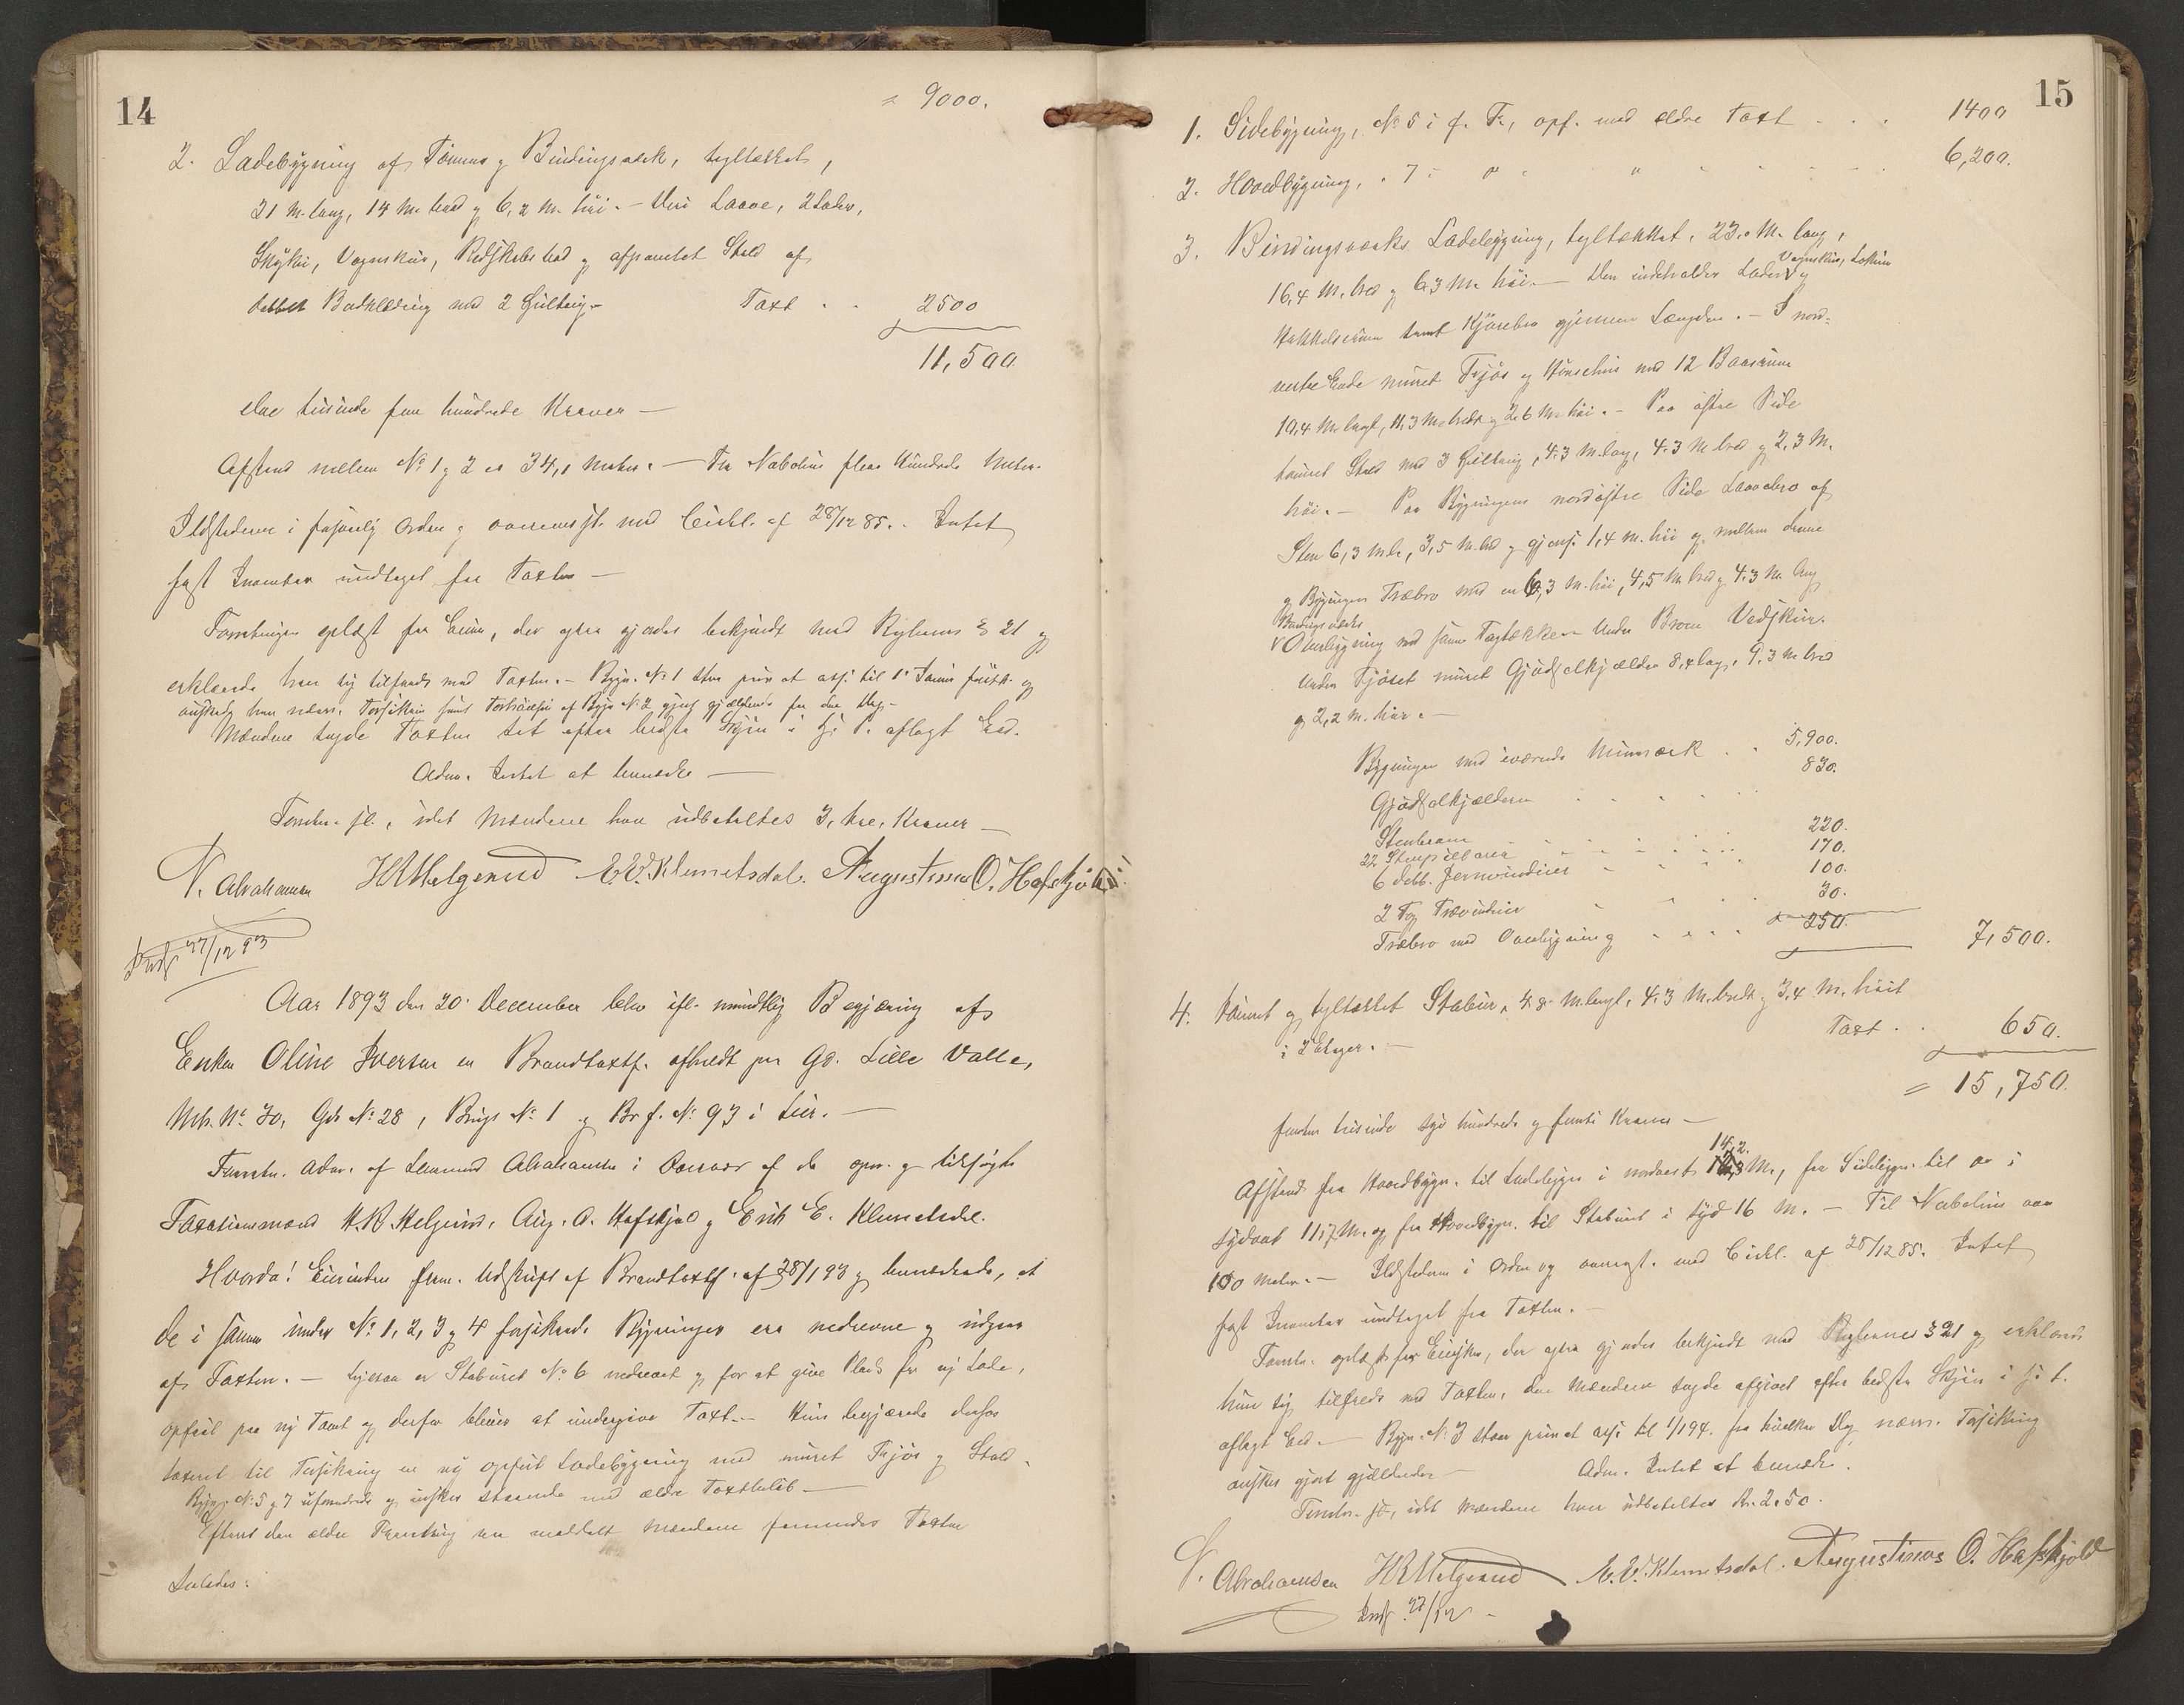 14
= 9000.
2. Ladebygning af Tømmer og Bindingsværk, tegltækket,
21 M. lang, 14 M. bred og 6,2 M. høi. - Deri Laave, 2 Lader,
Skykke, Vognskur, Redskabsbod og afpanelet Stald af
dobbelt Bordklædning med 2 Spiltoug. Taxt . . 2500
11,500.
elve tusinde fem hundrede Kroner —
Afstand mellem No 1 og 2 er 34,1 Meter. — Fra Nabohus flere Hundrede Meter.
Ildstederne i forsvarlig Orden og overensst. med Cirkl. af 28/12 85. Intet
fast Inventar undtaget fra Taxten —
Forretningen oplæst for Eieren, der ogsaa gjordes bekjendt med Reglernes § 21 og
erklærede han sig tilfreds med Taxten. - Bygn. No 1 staar privat ass. til 1ste Januar førstk. og
ønskede han nærv. Forsikring samt Forhøielse af Bygn No 2 gjort gjældende fra den Dag. -
Mændene tagde Taxten tat efter bedste Skjøn i H. t. aflagt Eed.
Adm. Intet at bemærke —
Forretn. sl., idet Mændene hver udbetaltes 3, tre, Kroner —
N. Abrahamsen HRHelgerud E.E.Klemetsdal. Augustinus O. Hafskjold.
Indf 27/12 93
Aar 1893 den 20. December blev ifl. mundtlig Begjæring af
Enken Oline Iversen en Brandtaxtf. afholdt paa Gd. Lille Valle,
Mtr. No 30, Gds No 28, Brugs No 1 og Br f. No 93 i Lier. —
Forretn. adm. af Lensmand Abrahamsen i Overvær af de opn. og tilsagte
Taxationsmænd H.R. Helgerud, Aug. O. Hafskjold og Erik E. Klemetsdal.
Hvorda! Eierinden frem. Udskrift af Brandtaxtf. af 28/1 93 og bemærkede, at
de i samme under No 1, 2, 3 og 4 forsikrede Bygninger ere nedrevne og udgaar
af Taxten. — Ligesaa er Stabüret No 6 nedrevet og for at give Plads for ny Lade,
opført paa ny Tomt og derfor bliver at undergive Taxt. - Hun begjærede derfor
taxeret til Forsikring en ny opført Ladebygning med muret Fjøs og Stald.
Bygn. No 5 og 7 uforandrede og ønskes staaende med ældre Taxtbeløb —
Efterat den ældre Forretning var meddelt Mændene foretoges Taxten
saaledes:
15
1. Sidebygning, No 5 i f. F., opf. med ældre Taxt . . . 1400
2. Hovedbygning, " 7 " " " 6,200.
3. Bindingsværks Ladebygning, tegltækket, 23,0 M. lang,
16,4 M. bred og 6,3 M. høi. — Den indeholder Lader, Vognskur, Lokum og
Hakkelserum samt Kjørebro gjennem Længden. - I nord-
vestre Ende muret Fjøs og Hønsehus med 12 Baasrum
10,4 M. langt, 11,3 M. bredt og 2,6 M. høi. - Paa østre Side
tømret Stald med 3 Spiltoug, 4,3 M. lang, 4,3 M. bred og 2,3 M.
høi. - Paa Bygningens nordøstre Side Laavebro af
Sten 6,3 M. l., 3,5 M. bred og gjens. 1,4 M. høi og mellem denne
og Bygningen Træbro med en 6,3 M. høi, 4,5 M. bred og 4,3 M. lang
Bindingsværks
Overbygning med samme Tagtække. Under Broen Vedskur.
Under Fjøset muret Gjødselkjælder 8,4 lang, 9,3 M. bred
og 2,2 M. høi. —
Bygningen med iværende Murværk . . 5,900.
Gjødselkjælderen . . . . 830.
Stenbroen . . . . 220.
22 Stenpillarer . . . . 170.
6 dobb. Jernvinduer . . . 100.
2 Fag Trævinduer . . . 30.
Træbro med Overbygning . . . . 250.
7,500.
4. Tømret og tegltækket Stabur, 4,8 M. langt, 4,3 M. bredt og 3,4 M. høit
i 2 Etager. — Taxt . . 650.
= 15,750.
femten tusinde syv hundrede og femti Kroner —
14,2.
Afstand fra Hovedbygn. til Ladebygn i nordvest M., fra Sidebygn. til do i
sydvest 11,7 M. og fra Hovedbygn. til Stabüret i Syd 16 M. — Til Nabohus over
100 Meter. — Ildstederne i Orden og overensst. med Cirkl. af 28/12 85. Intet
fast Inventar undtaget fra Taxten. —
Forretn. oplæst for Eiersken, der ogsaa gjordes bekjendt med Reglernes § 21 og erklærede
hun sig tilfreds med Taxten, den Mændene sagde afgivet efter bedste Skjøn i H. t.
aflagt Eed. — Bygn. No 3 staar privat ass. til 1/1 94. fra hvilken Dag nærv. Forsikring
ønskes gjort gjældende — Adm. Intet at bemærke.
Forretn. sl., idet Mændene hver udbetaltes Kr. 2,50.
N. Abrahamsen HRHelgerud E.E.Klemetsdal. Augustinus O. Hafskjold
Indf. 27/12 -